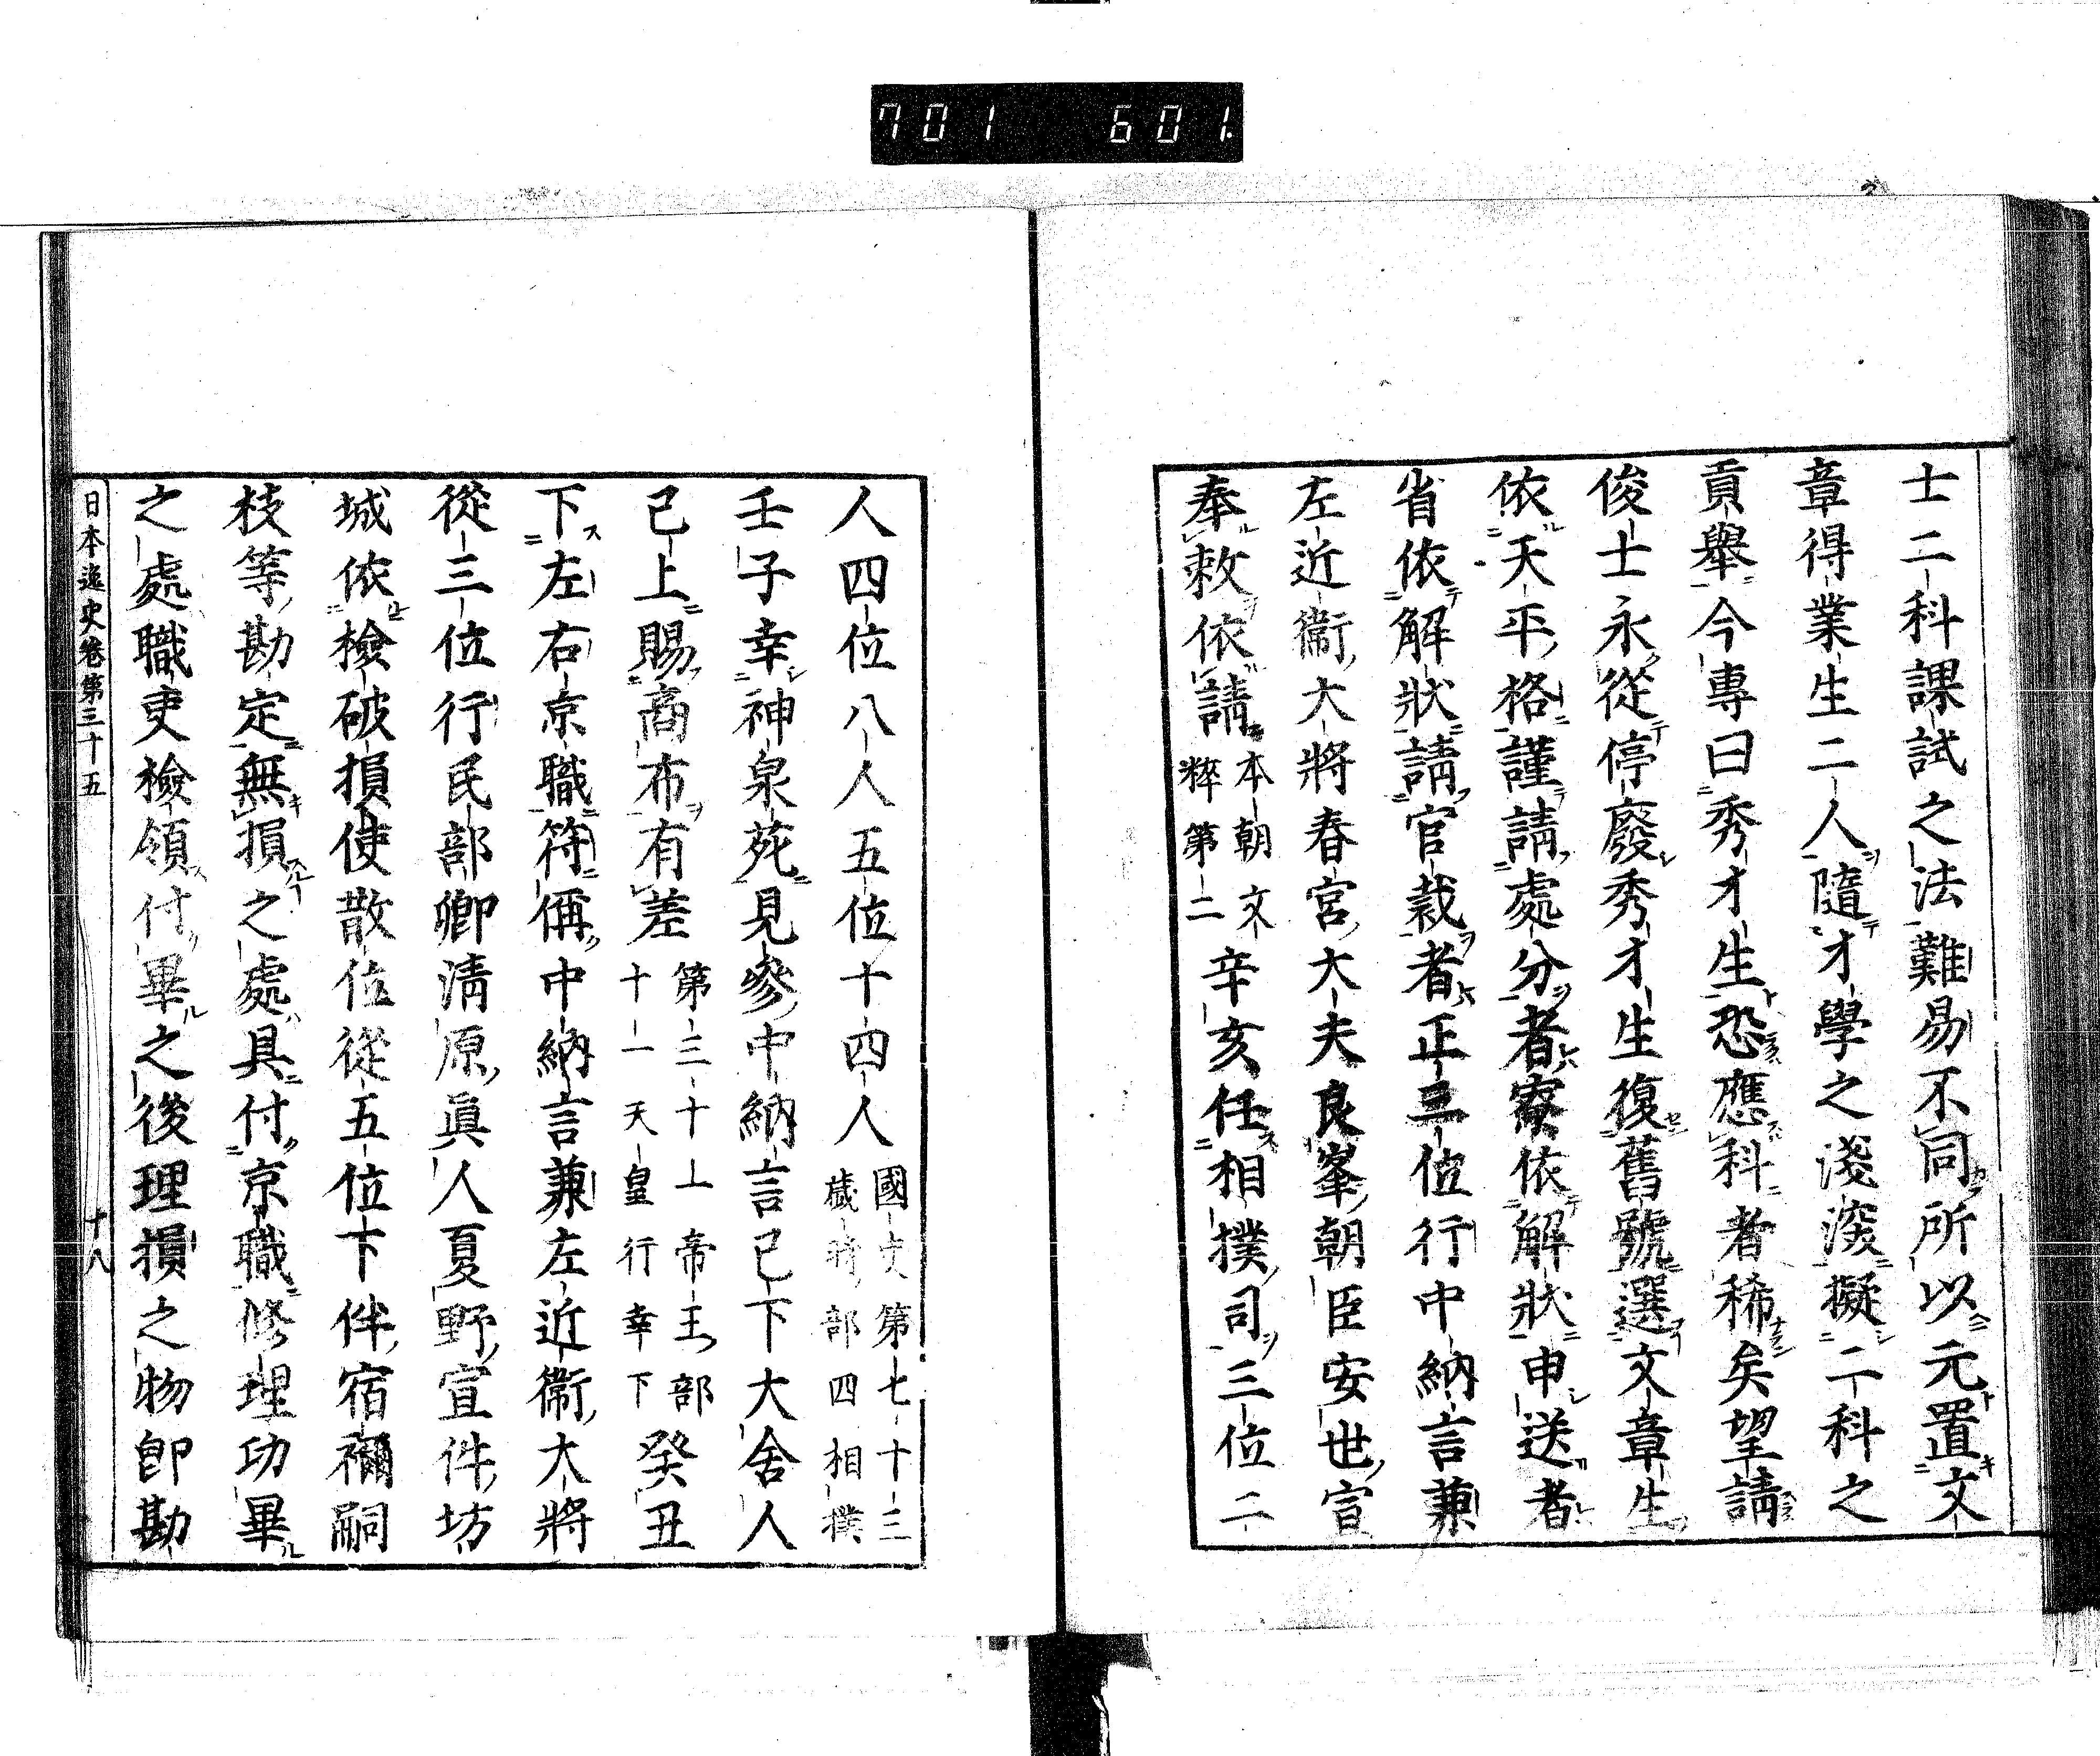 701 601.
士二科課試之法難易不同所以元置文
章得業生二人隨才學之淺深擬二科之
貢舉今專曰秀才生恐應科者稀矣望請
俊士永從停廢秀才生復舊號選文章生
依天平格謹請處分者寮依解狀申送者
省依解狀請官裁者正三位行中納言兼
左近衞大將春宮大夫良峯朝臣安世宣
奉敕依請本朝文粹第二辛亥任相撲司三位二
人四位八人五位十四人國史第七十三歲時部四相撲
壬子幸神泉苑見參中納言已下大舍人
已上賜商布有差第三十一帝王部十一天皇行幸下癸丑
下左右京職符偁中納言兼左近衞大將
從三位行民部卿淸原眞人夏野宣件坊
城依檢破損使散位從五位下伴宿禰嗣
枝等勘定無損之處具付京職修理功畢
之處職吏檢領付畢之後理損之物卽勘
日本逸史卷第三十五 十八